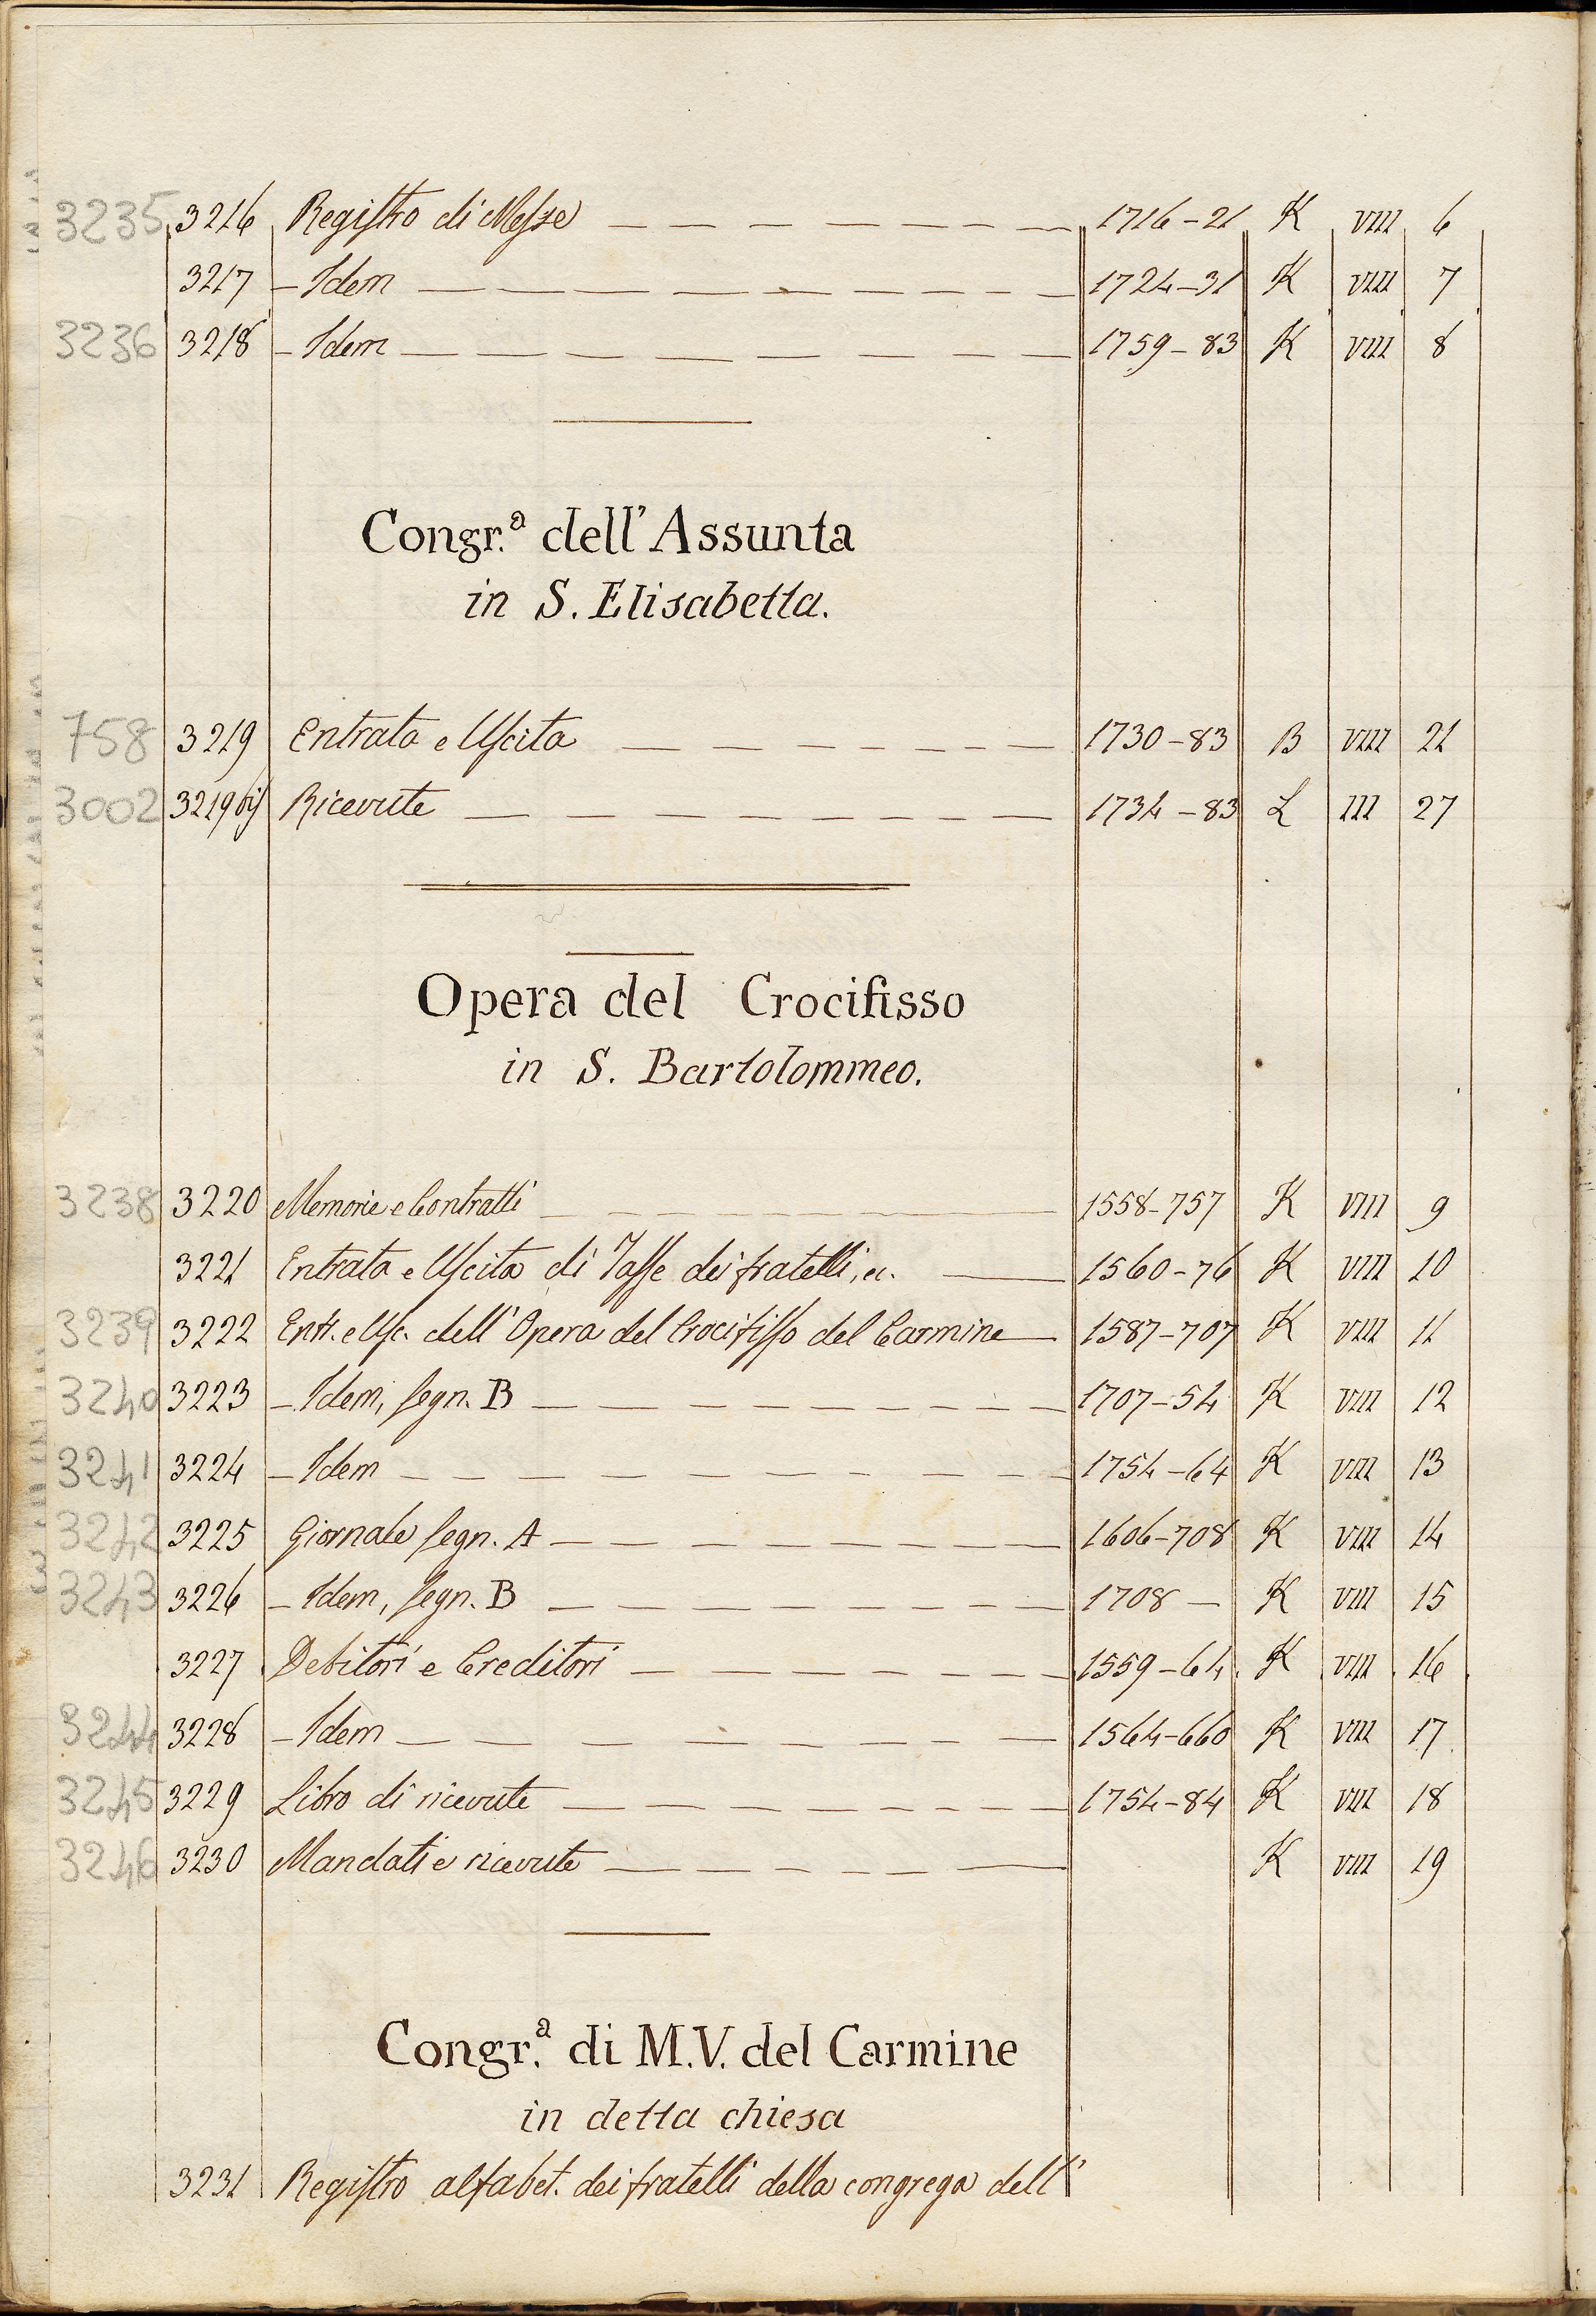 3235 3216 Registro di Messe 1716-21 K VIII 6
3217 - Idem 1724-31 K VIII 7
3236 3218 - Idem 1759-83 K VIII 8
Congr.ª dell'Assunta
in S. Elisabetta.
758 3219 Entrata e Uscita 1730-83 B VIII 21
3002 3219 bis Ricevute 1734-83 L III 27
Opera del Crocifisso
in S. Bartolommeo.
3238 3220 Memorie e Contratti 1558-757 K VIII 9
3221 Entrata e Uscita di Tasse dei fratelli, ec. 1560-76 K VIII 10
3239 3222 Entr. e Usc. dell'Opera del Crocifisso del Carmine 1587-707 K VIII 11
3240 3223 - Idem, segn. B 1707-54 K VIII 12
3241 3224 - Idem 1754-64 K VIII 13
3242 3225 Giornale segn. A 1606-708 K VIII 14
3243 3226 - Idem, segn. B 1708 - K VIII 15
3227 Debitori e Creditori 1559-64 K VIII 16
3244 3228 - Idem 1564-660 K VIII 17
3245 3229 Libro di ricevute 1754-84 K VIII 18
3246 3230 Mandati e ricevute K VIII 19
Congr.ª di M.V. del Carmine
in detta chiesa
3231 Registro alfabet. dei fratelli della congrega dell'